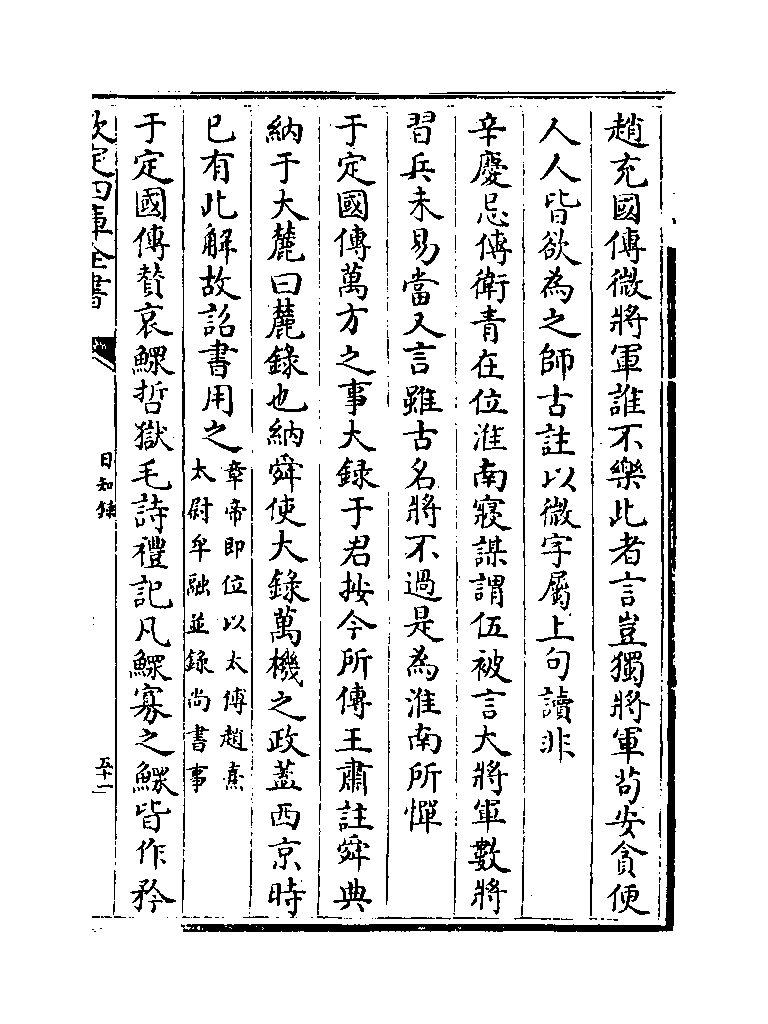 趙充國傳微將軍誰不樂此者言豈獨將軍苟安貪便
人人皆欲為之師古註以微字屬上句讀非
辛慶忌傳衛青在位淮南寢謀謂伍被言大將軍數將
習兵未易當又言雖古名將不過是為淮南所憚
于定國傳萬方之事大録于君按今所傳王肅註舜典
納于大麓曰麓錄也納舜使大錄萬機之政葢西京時
已有此解故詔書用之章帝即位以太傅趙憙
太尉牟融並録尚書事
于定國傳賛哀鰥哲獄毛詩禮記凡鰥寡之鰥皆作矜
欽定四庫全書
日知錄
五十一